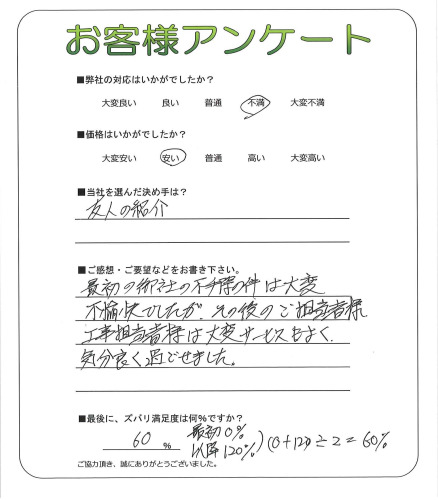 お客様アンケート
■弊社の対応はいかがでしたか?
大変良い 良い 普通 不満 大変不満
■価格はいかがでしたか?
大変安い 安い 普通 高い 大変高い
■当社を選んだ決め手は?
友人の紹介
■ご感想・ご要望などをお書き下さい。
最初の御社の不手際の件は大変
不愉快でしたが、その後のご担当者様
工事担当者様は大変サービスもよく、
気分良く過ごせました。
■最後に、ズバリ満足度は何%ですか?
60 % 最初0% 以降120% (0+120)÷2=60%
ご協力頂き、誠にありがとうございました。